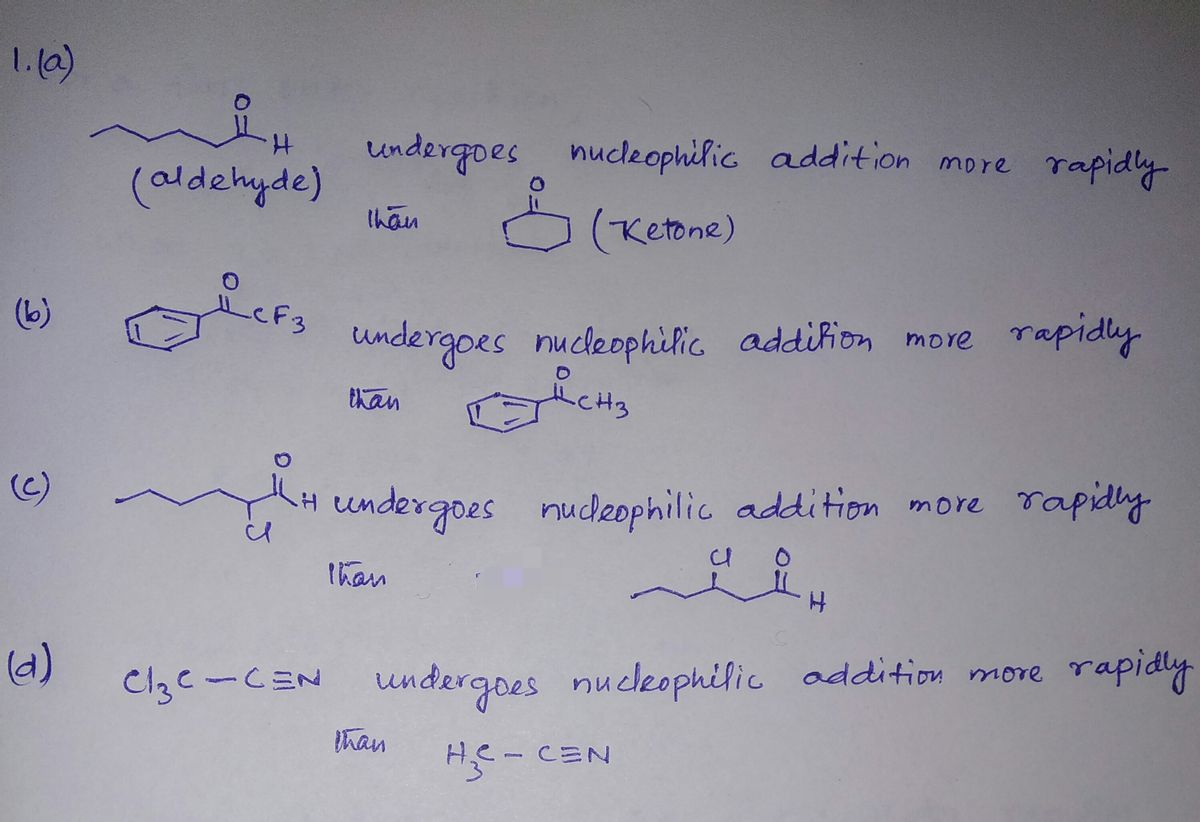 1.(a)
O
H
undergoes nucleophilic addition more rapidly
(aldehyde)
than
O
(Ketone)
(b)
O
CF3
undergoes nucleophilic addition more rapidly
than
O
CH3
(c)
O
H undergoes nucleophilic addition more rapidly
Cl
than
Cl O
H
(d) Cl3C-C≡N undergoes nucleophilic addition more rapidly
than H3C-C≡N